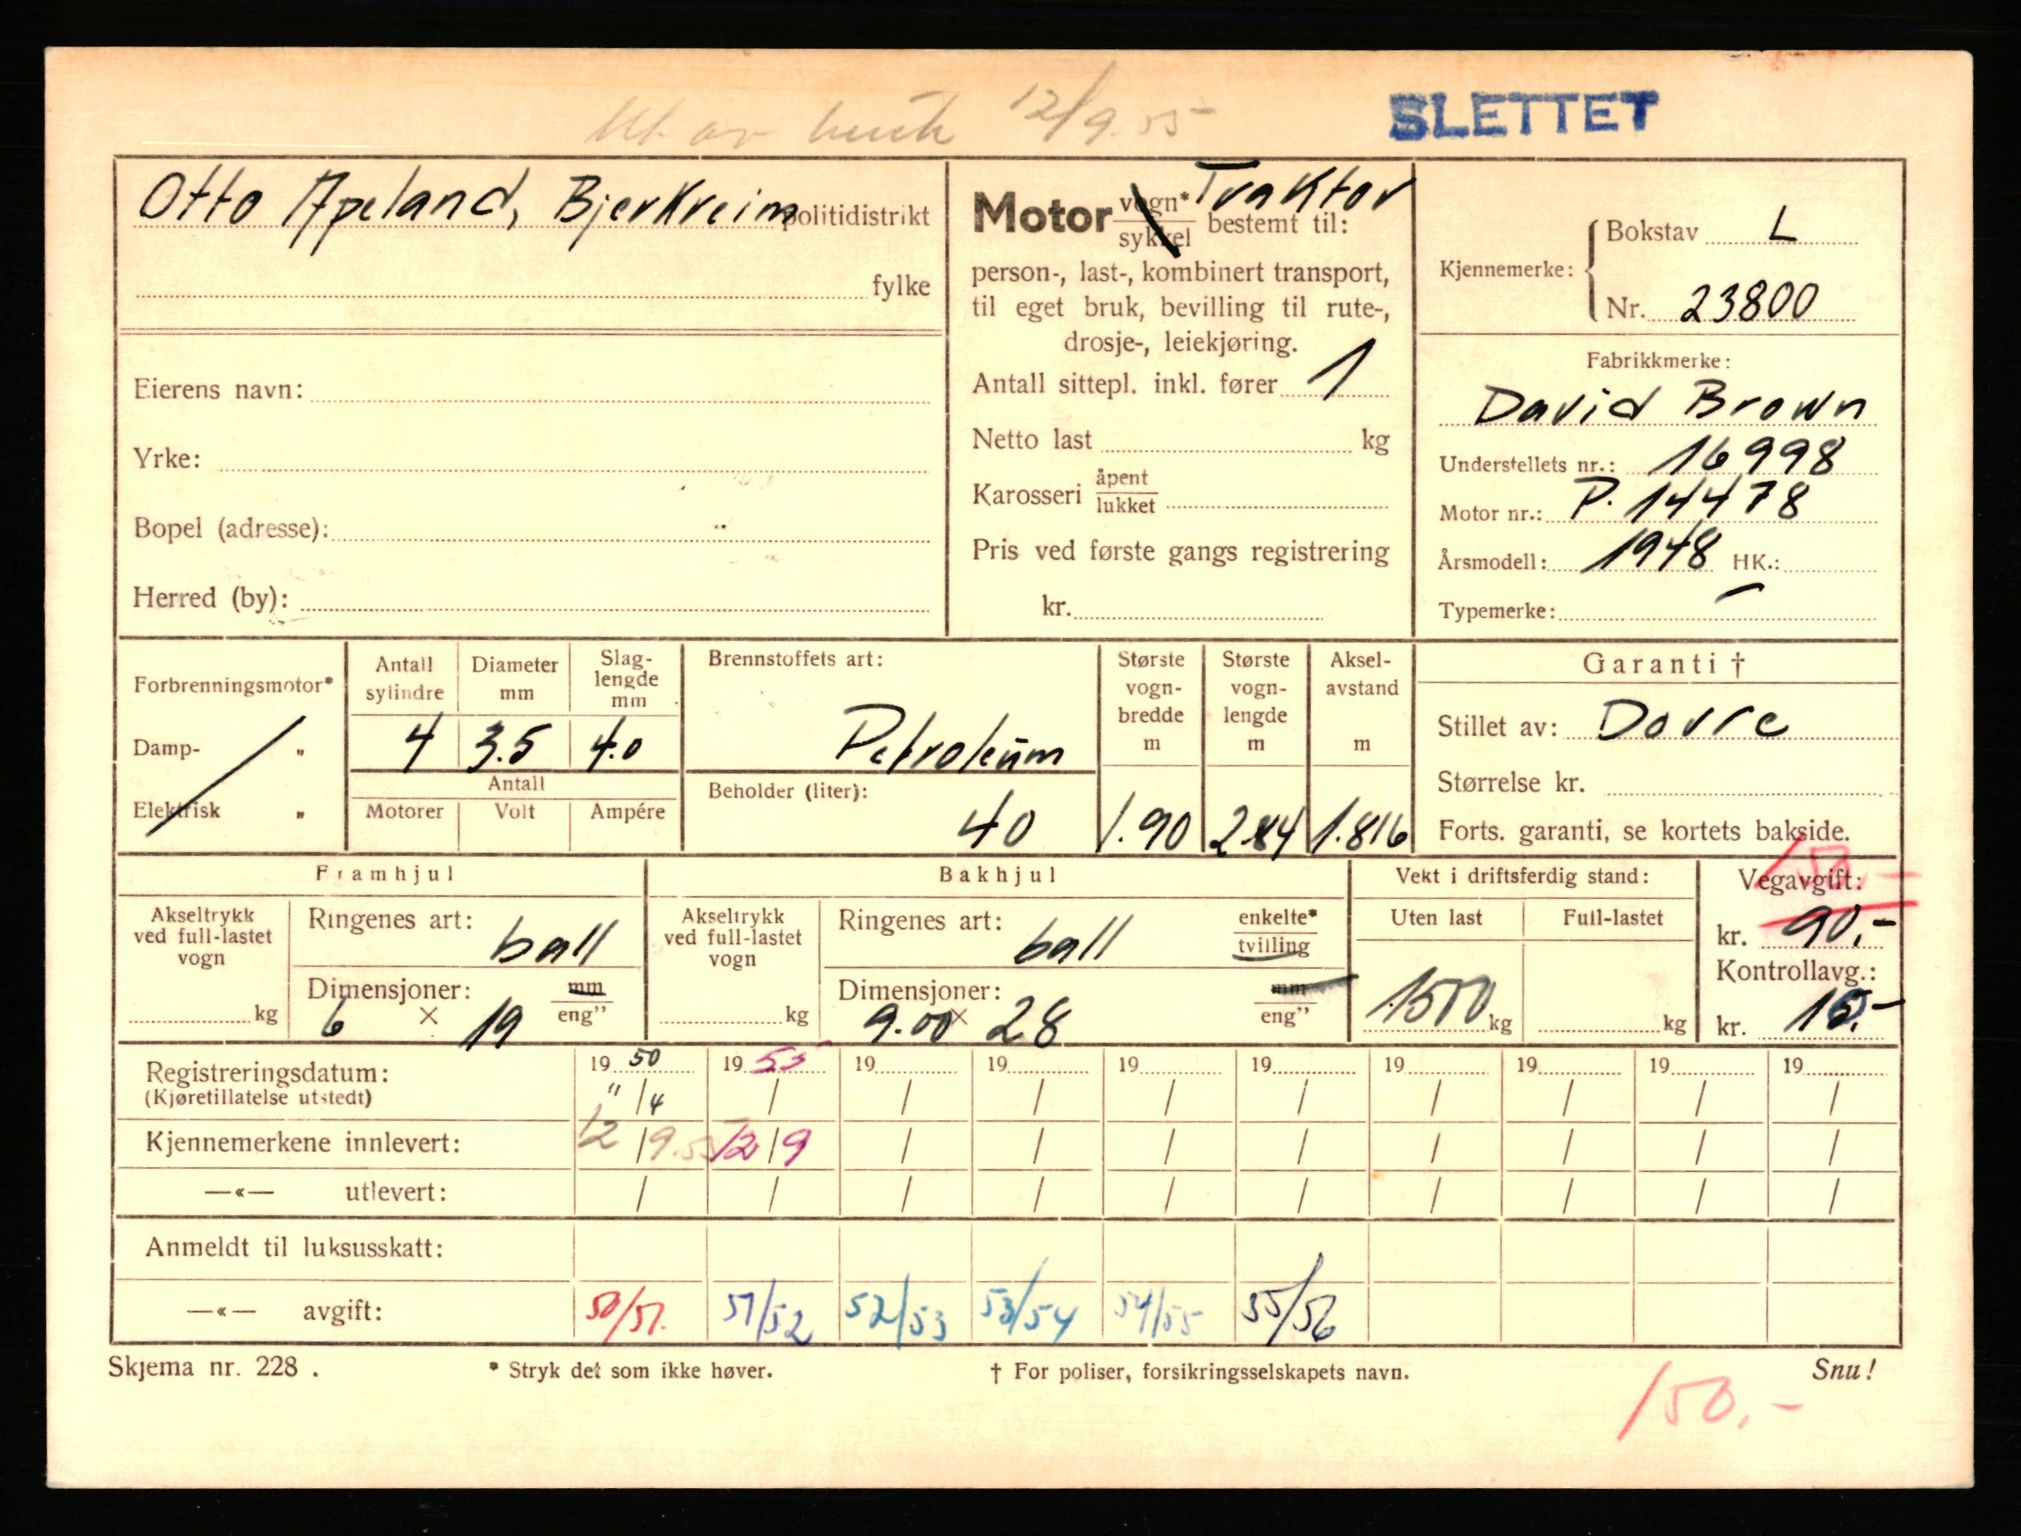 Ut av bruk 12/9.55
SLETTET
Otto Apeland, Bjerkreim politidistrikt
fylke
Eierens navn:
Yrke:
Bopel (adresse):
Herred (by):
Motor vogn* Traktor
sykkel bestemt til:
person-, last-, kombinert transport,
til eget bruk, bevilling til rute-,
drosje-, leiekjøring.
Antall sittepl. inkl. fører 1
Netto last kg
Karosseri åpent
lukket
Pris ved første gangs registrering
kr.
Kjennemerke: Bokstav L
Nr. 23800
Fabrikkmerke:
David Brown
Understellets nr.: 16998
Motor nr.: P. 14478
Årsmodell: 1948 HK.:
Typemerke: –
Forbrenningsmotor*
Damp- „
Elektrisk „
Antall sylindre
Diameter mm
Slag-
lengde
mm
4 3.5 4.0
Antall
Motorer Volt Ampére
Brennstoffets art:
Petroleum
Beholder (liter):
40
Største
vogn-
bredde
m
1.90
Største
vogn-
lengde
m
2.84
Aksel-
avstand
m
1.816
Garanti †
Stillet av: Dovre
Størrelse kr.
Forts. garanti, se kortets bakside.
Framhjul
Akseltrykk
ved full-lastet
vogn
kg
Ringenes art:
ball
Dimensjoner: mm
6 × 19 eng"
Bakhjul
Akseltrykk
ved full-lastet
vogn
kg
Ringenes art: enkelte*
ball tvilling
Dimensjoner: mm
9.00 × 28 eng"
Vekt i driftsferdig stand:
Uten last Full-lastet
1500 kg kg
Vegavgift:
kr. 90,-
Kontrollavg.:
kr. 10,-
Registreringsdatum: 19 50 19 55 19 19 19 19 19 19 19 19
(Kjøretillatelse utstedt) "/4 / / / / / / / / /
Kjennemerkene innlevert: 12/9.55 12/9 / / / / / / / /
—«— utlevert: / / / / / / / / / /
Anmeldt til luksusskatt:
—«— avgift: 50/51. 51/52 52/53 53/54 54/55 55/56
Skjema nr. 228 . * Stryk det som ikke høver. † For poliser, forsikringsselskapets navn. Snu!
150.-